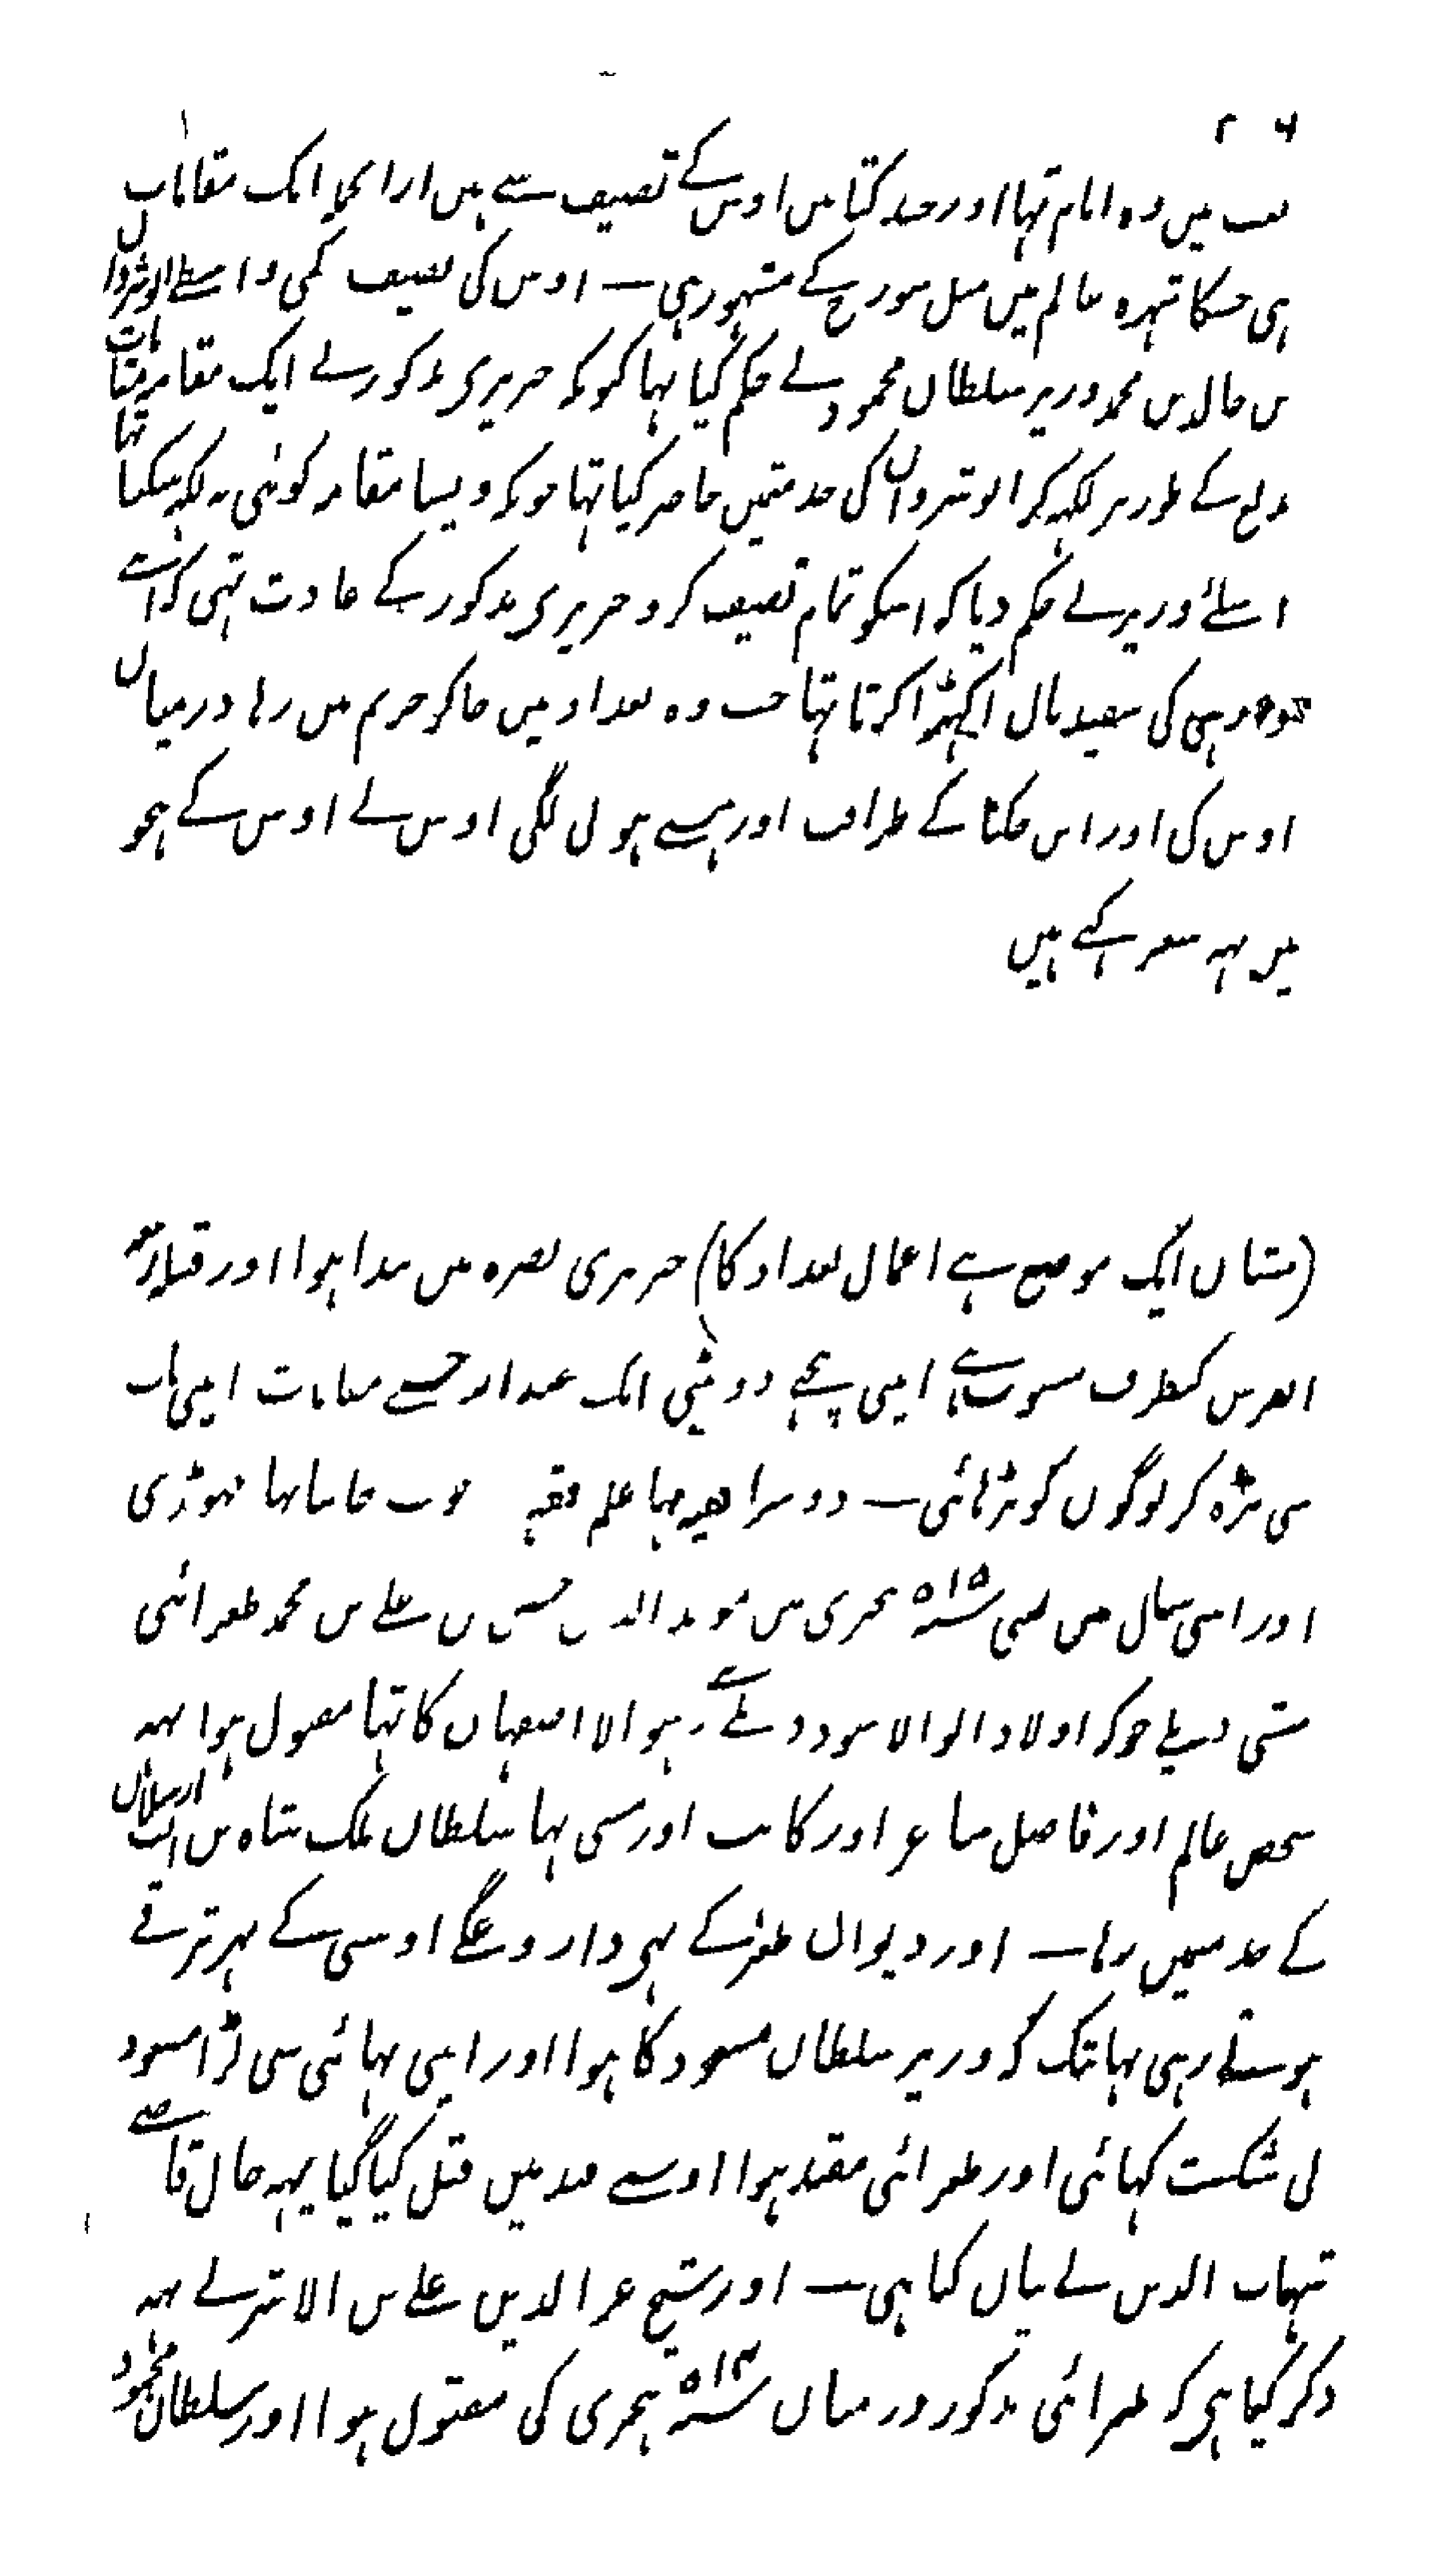 ۲۶
ادب میں وہ امام تھا اور چند کتابیں اوس کے تصنیف سے ہیں ازانجملہ ایک مقامات
ہی جسکا شہرہ عالم میں مثل سورج کے مشہور ہی — اوس کی تصنیف کی واسطے انوشروان
بن خالد بن محمد وزیر سلطان محمود نے حکم کیا تہا کیونکہ حریری مذکور نے ایک مقامہ مقامات
بدیع کے طور پر لکہہ کر انوشروان کی خدمتمیں حاضر کیا تہا جو کہ ویسا مقامہ کوئی نہ لکہہ سکتا تہا
اسلئے وزیر نے حکم دیا کہ اسکو تمام تصنیف کرو حریری مذکور کے عادت تہی کہ اپنے
کی سفید بال اکہیڑا کرتا تہا جب وہ بغداد میں جاکر حریم میں رہا درمیان
اوس کی اور ابن جکینا کے ظرافت اور ہنسے ہونی لگی اوس نے اوس کے ہجو
میں یہہ شعر کہے ہیں
(مشان ایک موضع ہے اعمال بغداد کا) حریری بصرہ میں پیدا ہوا اور قبیلہ
الفرس کیطرف منسوب ہے اپنی پیچہے دو بیٹی ایک عبداللہ جسنے مقامات اپنی باپ
سی پڑہ کر لوگوں کو پڑہائی — دوسرا فقیہ تہا علم فقہ خوب جانتا تہا چہوڑی
اور اسی سال میں یعنی ۵۱۵ ہجری میں موید الدین حسین بن علے بن محمد طغرائی
منشی دیلمی جو کہ اولاد ابو الاسود دولی رہنوالا اصفہان کا تہا مقتول ہوا یہہ
شخص عالم اور فاضل شاعر اور کاتب اور منشی تہا سلطان ملک شاہ بن الب ارسلان
کے خدمتمیں رہا — اور دیوان طغرا کے بہی داروغگے اوسی کے پہر ترقے
ہوتے رہی یہانتک کہ وزیر سلطان مسعود کا ہوا اور اپنی بہائی سی لڑا مسعود
نی شکست کہائی اور طغرائی مقید ہوا اوسے قید میں قتل کیا گیا یہہ حال قاضے
شہاب الدین نے بیان کیا ہی — اور شیخ عز الدین علے بن الاثیر نے یہہ
ذکر کیا ہی کہ طغرائی مذکور درمیان ۵۱۴ ہجری کی مقتول ہوا اور سلطان محمود